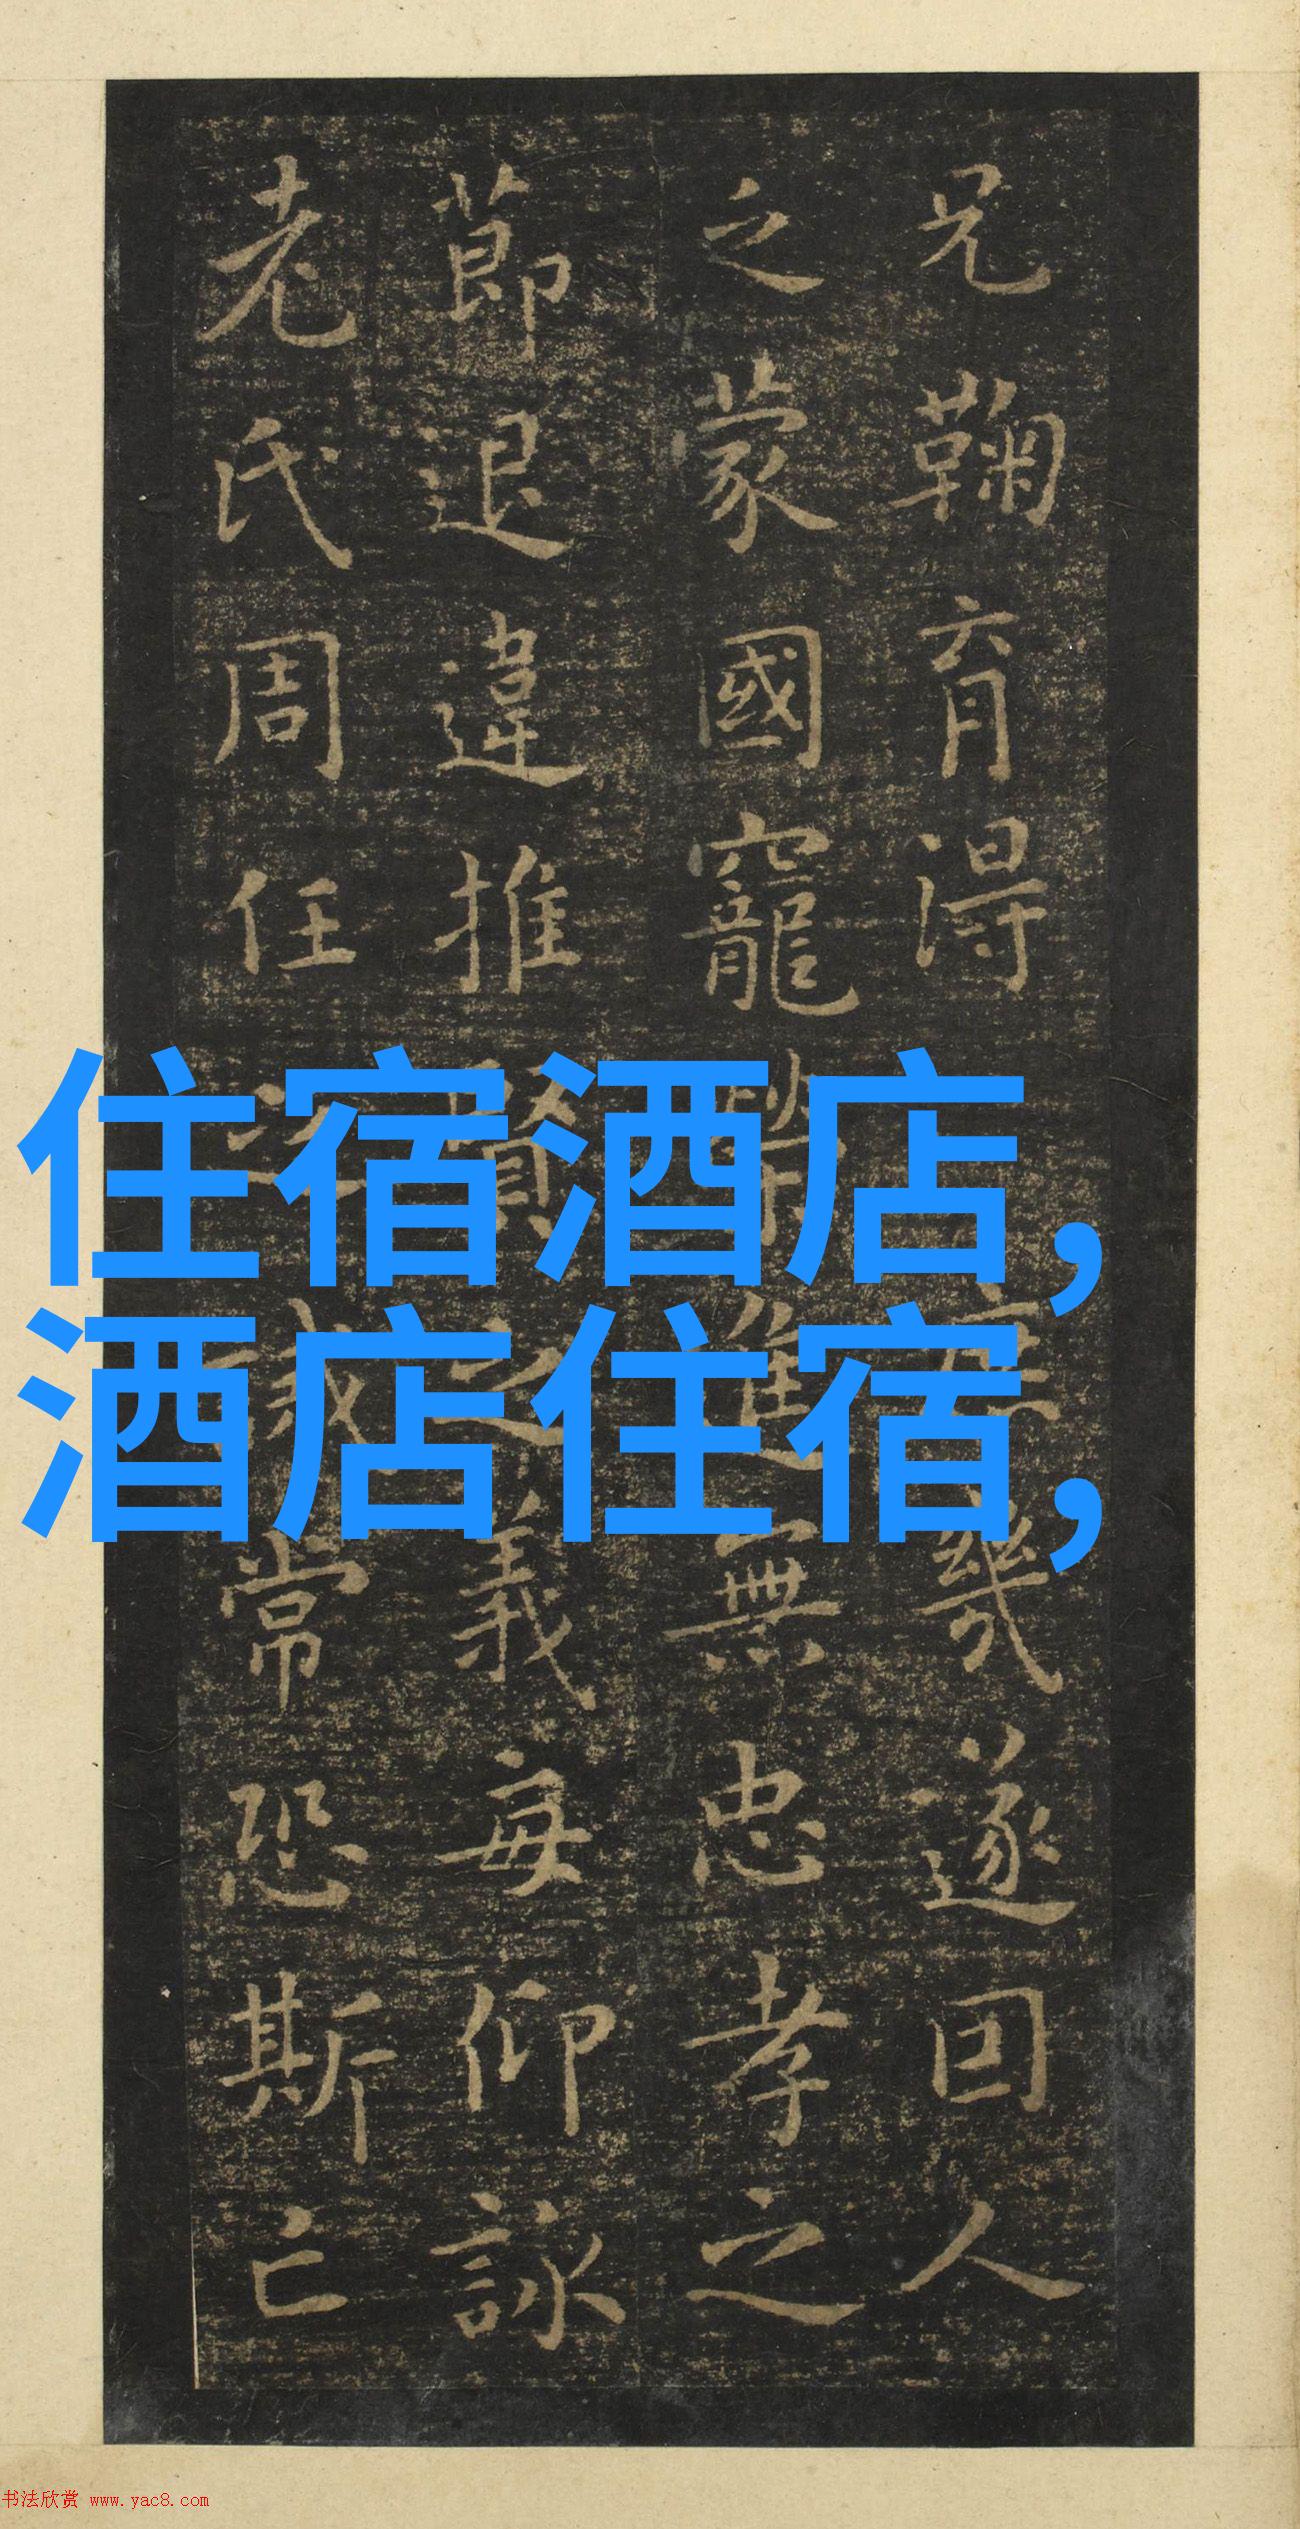 兄鞠育得
庶幾遂回人
之蒙國寵
進無忠孝之
節退違推賢之義每仰詠
老氏周任之誡常恐斯亡
住宿酒店,
酒店住宿,
书法欣赏 www.yac8.com